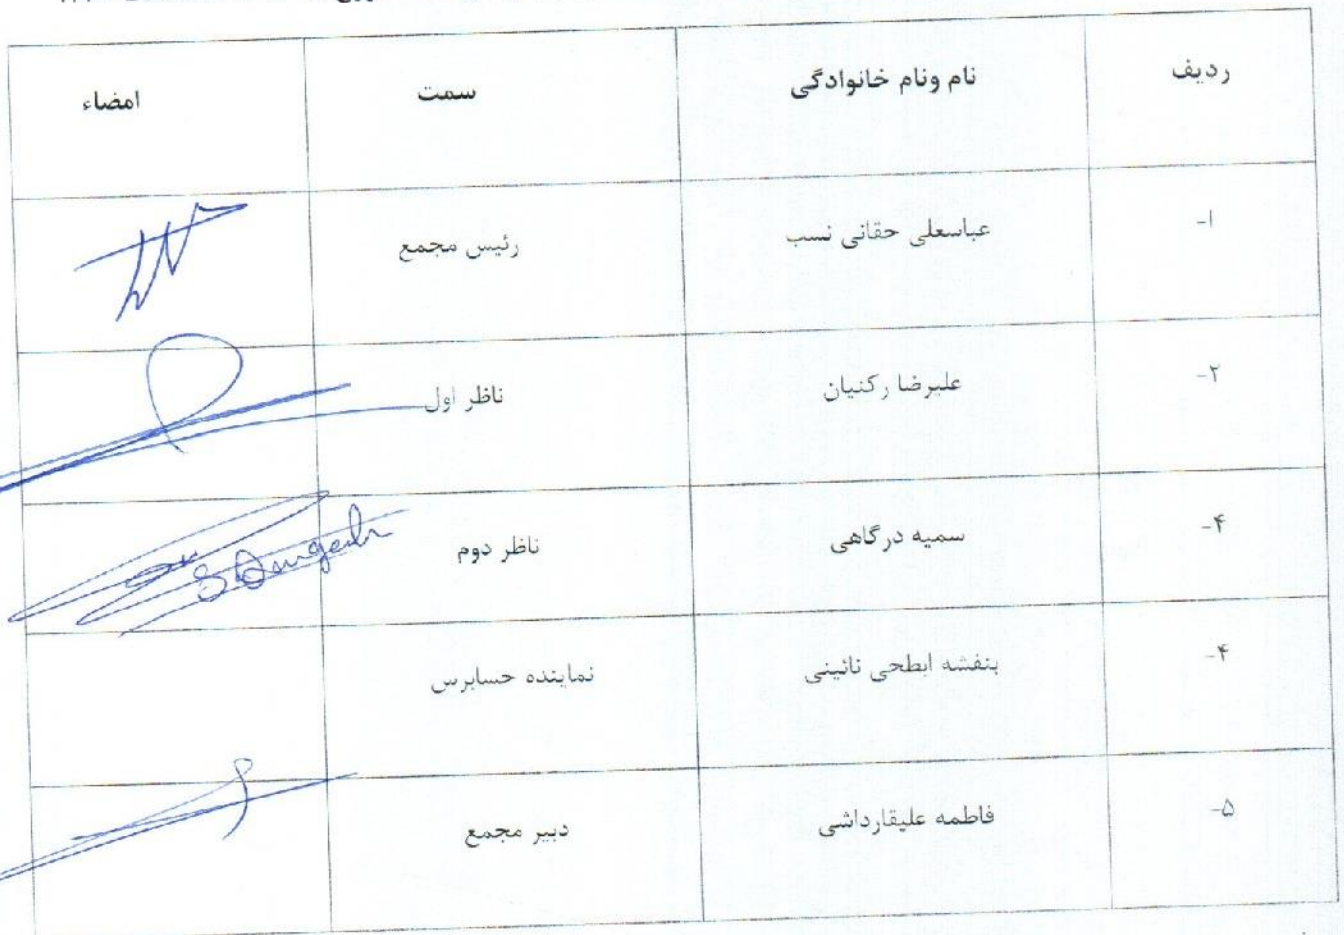 ردیف	نام ونام خانوادگی	سمت	امضاء
۱-	عباسعلی حقانی نسب	رئیس مجمع
۲-	علیرضا رکنیان	ناظر اول
۴-	سمیه درگاهی	ناظر دوم
۴-	بنفشه ابطحی نائینی	نماینده حسابرس
۵-	فاطمه علیقارداشی	دبیر مجمع